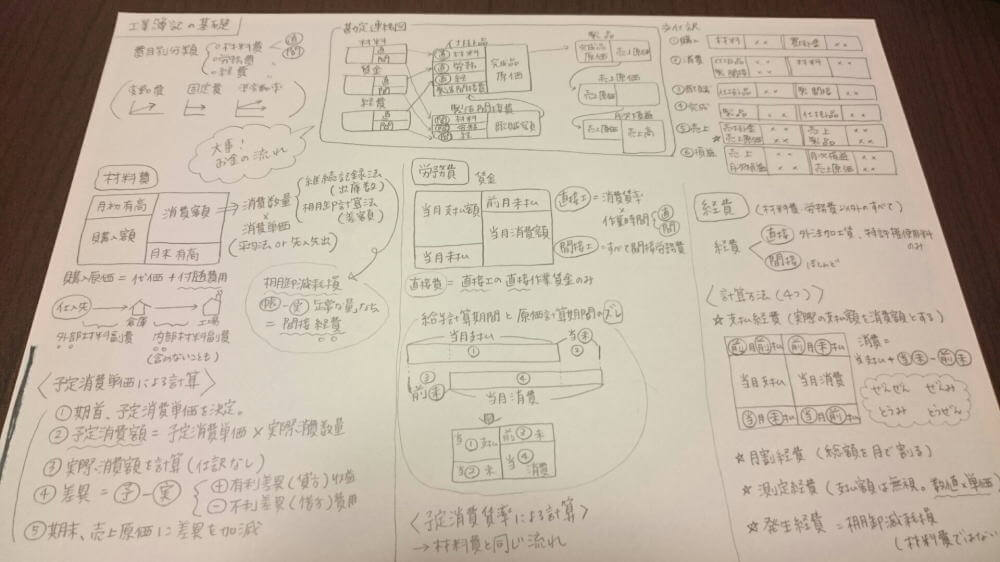 工業簿記の基礎
費目別分類
○材料費
○労務費
○経費
直
間
変動費 固定費 準変動費
大事!
お金の流れ
勘定連絡図
材料
直
間
賃金
直
間
経費
直
間
仕掛品
直 材料
直 労務
直 経
製造間接費
完成品
原価
製造間接費
間 材料
間 労務
間 経
製品
完成品
原価
売上原価
売上原価
売上原価
月次損益
売上原価
売上高
①購入
材料 ××
買掛金 ××
②消費
仕掛品 ××
製間接 ××
材料 ××
仕掛品 ××
製間接 ××
④完成
製品 ××
仕掛品 ××
⑤売上
売掛金 ××
売上原価 ××
売上 ××
製品 ××
⑥損益
売上 ××
月次損益 ××
月次損益 ××
売上原価 ××
材料費
月初有高
購入額
消費額
月末有高
消費数量
×
消費単価
(平均法 or 先入先出)
継続記録法
(出庫数)
棚卸計算法
(差額)
購入原価 = 代価 + 付随費用
仕入先
倉庫
工場
外部材料副費
内部材料副費
(含めないことも)
棚卸減耗損
帳 − 実 正常な量なら
= 間接経費
〈予定消費単価による計算〉
①期首、予定消費単価を決定。
②予定消費額 = 予定消費単価 × 実際消費数量
③実際消費額を計算 (仕訳なし)
④差異 = 予 − 実
+ 有利差異 (貸方) 収益
− 不利差異 (借方) 費用
⑤期末、売上原価に差異を加減
労務費 賃金
当月支払額
当月未払
前月未払
当月消費額
直接工 = 消費賃率
×
作業時間
直
間
間接工 = すべて間接労務費
直接費 = 直接工の直接作業賃金のみ
給与計算期間と原価計算期間のズレ
当月支払
当未
①
②
③
④
前未
当月消費
当①支払
前③未
当②未
当④消費
〈予定消費賃率による計算〉
→ 材料費と同じ流れ
経費 (材料費・労務費以外のすべて)
経費
直接 外注加工賃、特許権使用料
のみ
間接 ほとんど
〈計算方法 (4つ)〉
☆支払経費 (実際の支払額を消費額とする)
前月前払 前月未払
当月支払 当月消費
当月未払 当月前払
消費 =
ぜんぜん ぜんみ
とうみ とうぜん
☆月割経費 (総額を月で割る)
☆測定経費 (支払額は無視。数値×単価)
☆発生経費 = 棚卸減耗損
(材料費ではない